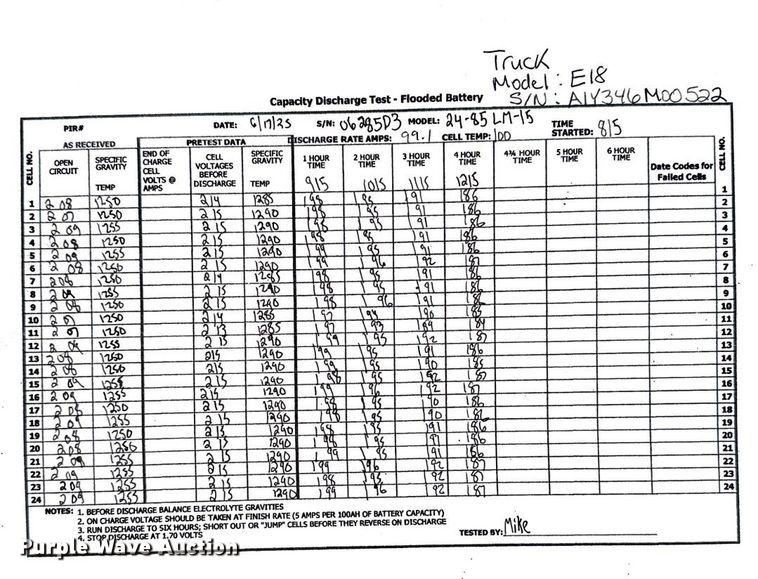 Truck
Model: E18
S/N: A1Y346M00522
Capacity Discharge Test - Flooded Battery
PIR# DATE: 6/17/25 S/N: 06285D3 MODEL: 24-85LM-15 TIME STARTED: 815
AS RECEIVED PRETEST DATA DISCHARGE RATE AMPS: 99.1 CELL TEMP: 100
CELL NO. OPEN CIRCUIT SPECIFIC GRAVITY TEMP END OF CHARGE CELL VOLTS @ AMPS CELL VOLTAGES BEFORE DISCHARGE SPECIFIC GRAVITY TEMP 1 HOUR TIME 2 HOUR TIME 3 HOUR TIME 4 HOUR TIME 4¾ HOUR TIME 5 HOUR TIME 6 HOUR TIME Date Codes for Failed Cells CELL NO.
915 1015 1115 1215
1 208 1250 214 1285 198 195 191 186 1
2 207 1250 215 1290 198 195 191 186 2
3 209 1255 215 1290 198 195 191 186 3
4 208 1250 215 1290 198 191 186 4
5 209 1255 215 1290 199 195 191 186 5
6 208 1250 215 1290 199 196 192 187 6
7 208 214 1285 198 195 191 186 7
8 209 1255 215 1290 198 195 191 186 8
9 208 1250 215 1290 198 196 191 186 9
10 207 1250 214 1285 197 194 190 10
11 207 1250 213 1285 197 193 189 184 11
12 209 1255 215 1290 199 195 192 187 12
13 208 1250 215 1290 199 195 191 186 13
14 208 1250 215 1290 199 195 191 186 14
15 209 1255 215 1290 198 195 192 187 15
16 209 1255 215 1290 199 196 192 187 16
17 208 1250 215 1290 198 195 190 186 17
18 209 1255 215 1290 198 195 190 186 18
19 208 1250 215 1290 198 195 191 186 19
20 208 1250 215 1290 198 195 191 186 20
21 209 1255 215 1290 199 195 191 186 21
22 209 1255 215 1290 199 196 192 187 22
23 209 1255 215 1290 198 195 192 187 23
24 209 1255 215 1290 199 196 192 187 24
NOTES: 1. BEFORE DISCHARGE BALANCE ELECTROLYTE GRAVITIES
2. ON CHARGE VOLTAGE SHOULD BE TAKEN AT FINISH RATE (5 AMPS PER 100AH OF BATTERY CAPACITY)
3. RUN DISCHARGE TO SIX HOURS; SHORT OUT OR "JUMP" CELLS BEFORE THEY REVERSE ON DISCHARGE
4. STOP DISCHARGE AT 1.70 VOLTS
TESTED BY: Mike
Purple Wave Auction